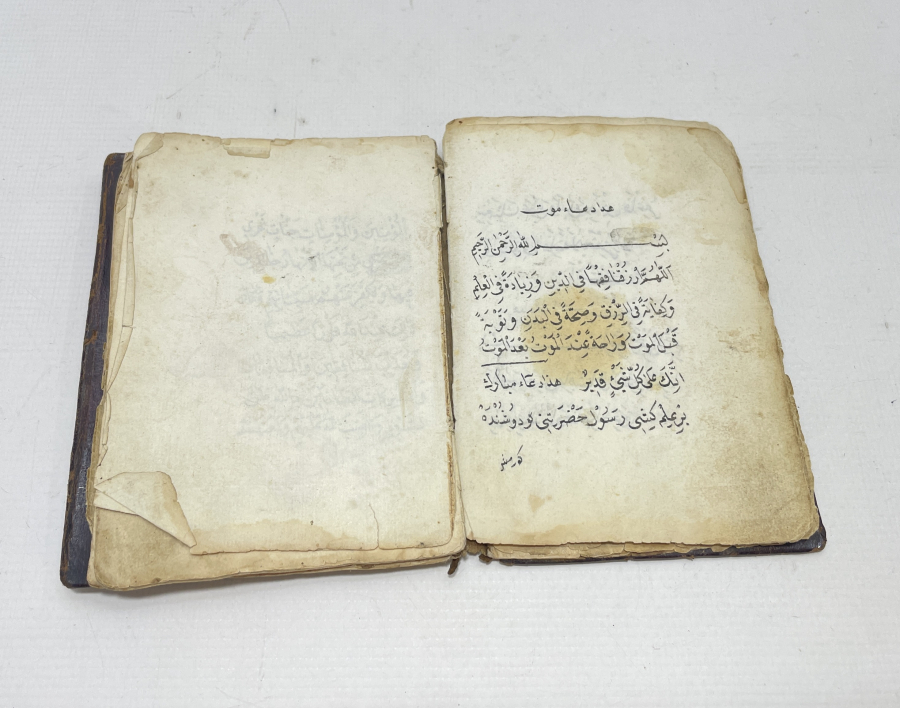 هذا دعاء موت
بسم الله الرحمن الرحيم
اللهم ارزقنا فقها في الدين وزيادة في العلم
وكفاية في الرزق وصحة في البدن وتوبة
قبل الموت وراحة عند الموت بعد الموت
انك على كل شئ قدير هذا دعاء مبارك
بر مسلم كيشى رسول حضرتنى